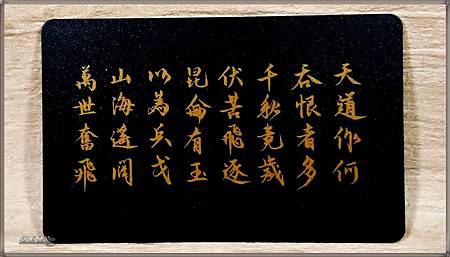 天道作何
吞恨者多
千秋竞歲
伏甚飛逐
昆侖有玉
以為兵戈
山海遙闊
萬世奮飛